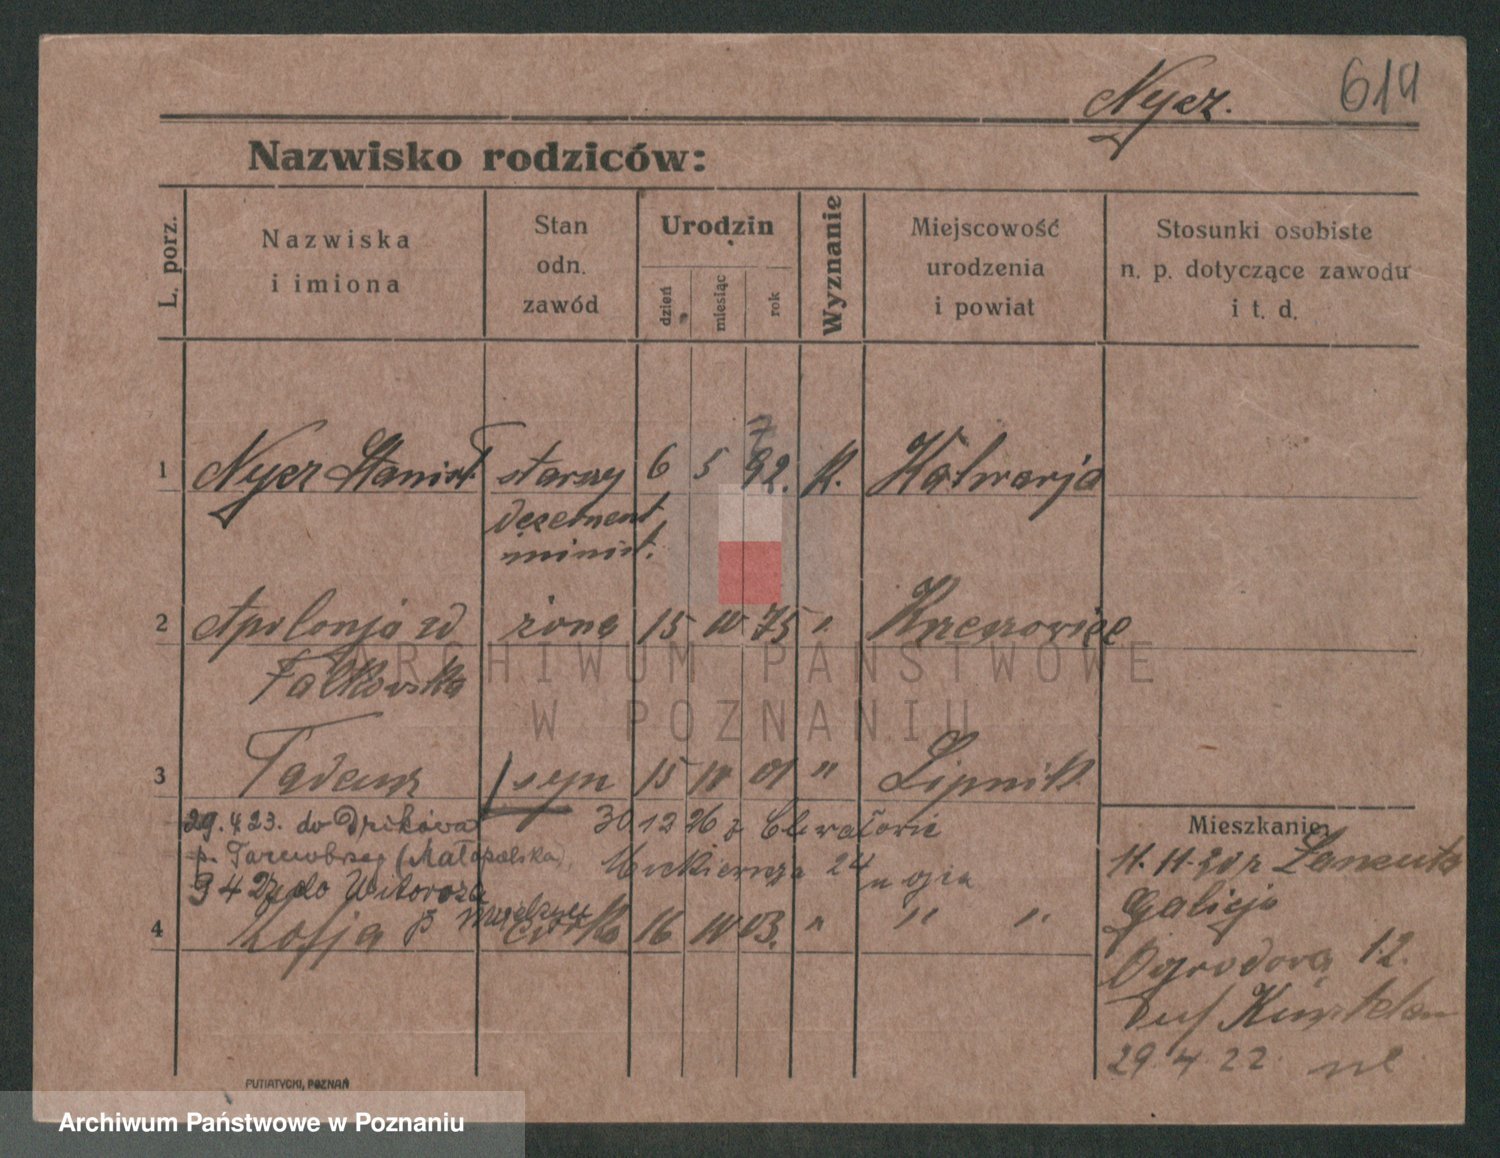 Nycz. 614
Nazwisko rodziców:
L. porz.
Nazwiska
i imiona
Stan
odn.
zawód
Urodzin
dzień
miesiąc
rok
Wyznanie
Miejscowość
urodzenia
i powiat
Stosunki osobiste
n. p. dotyczące zawodu
i t. d.
7
1 Nycz Stanisł. starszy 6 5 92. K. Kalwarja
decernent
minist.
2 Apolonja zd żona 15 IV 75 " Krzeszowice
Falkowska
ARCHIWUM PAŃSTWOWE
W POZNANIU
3 Tadeusz syn 15 IV 01 " Lipnik
29.4 23. do Dzikowa 30 12 26 z
p. Tarnobrzeg (Małopolska) 24
9 4 27 do
4 Zofja córka 16 IV 03. " " "
Mieszkanie:
11. 11. 20 z Łancuta
Galicja
Ogrodowa 12.
29 4 22
PUTIATYCKI, POZNAŃ
Archiwum Państwowe w Poznaniu